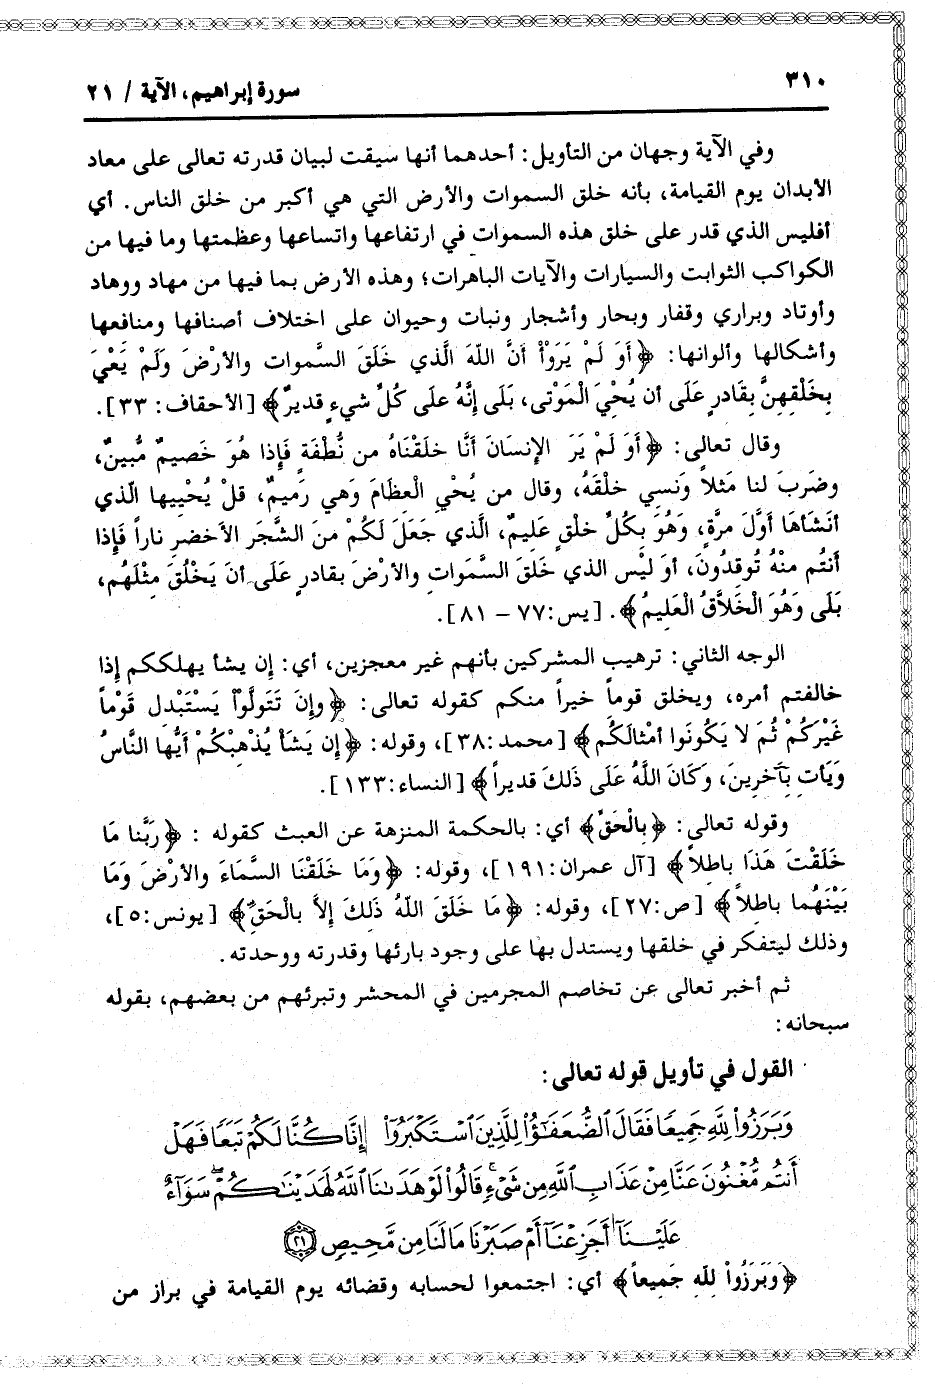 ٣١٠
سورة إبراهيم، الآية / ٢١
وفي الآية وجهان من التأويل: أحدهما أنها سيقت لبيان قدرته تعالى على معاد
الأبدان يوم القيامة، بأنه خلق السموات والأرض التي هي أكبر من خلق الناس. أي
أفليس الذي قدر على خلق هذه السموات في ارتفاعها واتساعها وعظمتها وما فيها من
الكواكب الثوابت والسيارات والآيات الباهرات؛ وهذه الأرض بما فيها من مهاد ووهاد
وأوتاد وبراري وقفار وبحار وأشجار ونبات وحيوان على اختلاف أصنافها ومنافعها
وأشكالها وألوانها: ﴿أَوَ لَمْ يَرَوْا أَنَّ اللهَ الَّذي خَلَقَ السَّموات والأرْضَ وَلَمْ يَعْيَ
بِخَلْقِهِنَّ بِقَادرٍ عَلَى أن يُحْيِ الْمَوْتى، بَلَى إنَّهُ علَى كُلِّ شيءٍ قديرٌ﴾ [الأحقاف: ٣٣].
وقال تعالى: ﴿أَوَ لَمْ يَرَ الإنسَانَ أنَّا خلَقْنَاهُ من نُّطْفَةٍ فَإِذا هُوَ خَصيمٌ مُّبينٌ،
وضَرَبَ لنا مَثلاً وَنَسي خلْقَهُ، وقال من يُحْي الْعِظَامَ وَهي رَميمٌ، قلْ يُحْييها الّذي
أنشَاهَا أوَّلَ مرَّةٍ، وَهُوَ بكُلِّ خلْقٍ عَليمٌ، الَّذي جَعَلَ لَكُمْ مَنَ الشَّجَر الأخضر ناراً فَإِذا
أَنتُم منْهُ تُوقدُونَ، أوَ ليْس الذي خَلقَ السَّمَوات والأرْضَ بقادرٍ عَلَى أنَ يَخْلُقَ مثْلَهُم،
بَلَى وَهُوَ الْخَلاَّقُ الْعَليمُ﴾. [يس:٧٧ – ٨١].
الوجه الثاني: ترهيب المشركين بأنهم غير معجزين، أي: إن يشأ يهلككم إذا
خالفتم أمره، ويخلق قوماً خيراً منكم كقوله تعالى: ﴿وإنَ تَتَولَّوْا يَسْتَبْدل قَوْماً
غَيْرَكُمْ ثُمَ لا يَكُونَوا أمْثالَكُم﴾ [محمد:٣٨]، وقوله: ﴿إِن يَشَأْ يُذْهِبْكُمْ أَيُّها النَّاسُ
وَيَأت بِآخَرينَ، وَكَانَ اللَّهُ عَلَى ذَلكَ قديراً﴾ [النساء:١٣٣].
وقوله تعالى: ﴿بِالْحَقِّ﴾ أي: بالحكمة المنزهة عن العبث كقوله : ﴿رَبَّنا مَا
خَلَقْتَ هَذَا باطلاً﴾ [آل عمران:١٩١]، وقوله: ﴿وَمَا خَلَقْنَا السَّمَاءَ والأرْضَ وَمَا
بَيْنَهُما باطلاً﴾ [ص:٢٧]، وقوله: ﴿مَا خَلَقَ اللَّهُ ذَلكَ إلاَّ بالْحَقِّ﴾ [يونس:٥]،
وذلك ليتفكر في خلقها ويستدل بها على وجود بارئها وقدرته ووحدته.
ثم أخبر تعالى عن تخاصم المجرمين في المحشر وتبرئهم من بعضهم، بقوله
سبحانه:
القول في تأويل قوله تعالى:
وَبَرَزُوا۟ لِلَّهِ جَمِيعًا فَقَالَ ٱلضُّعَفَٰٓؤُا۟ لِلَّذِينَ ٱسْتَكْبَرُوٓا۟ إِنَّا كُنَّا لَكُمْ تَبَعًا فَهَلْ
أَنتُم مُّغْنُونَ عَنَّا مِنْ عَذَابِ ٱللَّهِ مِن شَىْءٍ قَالُوا۟ لَوْ هَدَىٰنَا ٱللَّهُ لَهَدَيْنَٰكُمْ سَوَآءٌ
عَلَيْنَآ أَجَزِعْنَآ أَمْ صَبَرْنَا مَا لَنَا مِن مَّحِيصٍ ۝٢١
﴿وَبَرَزُواْ لِلّهِ جَمِيعاً﴾ أي: اجتمعوا لحسابه وقضائه يوم القيامة في براز من